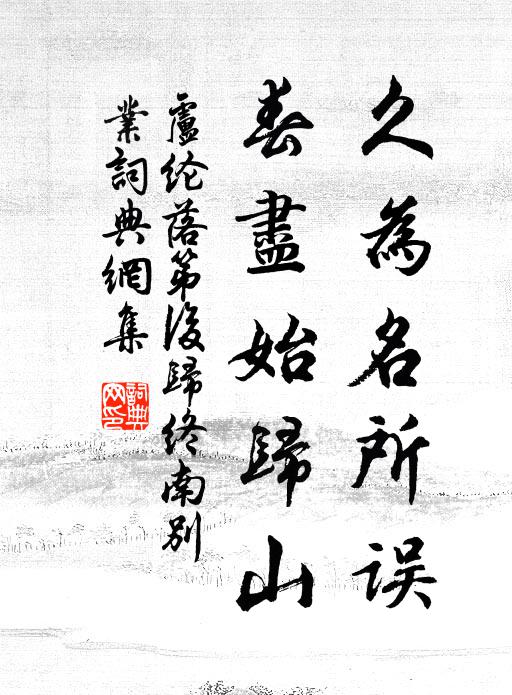 久為名所误
春盡始歸山
盧纶落第後歸终南别
業詞典網集
詞典网印